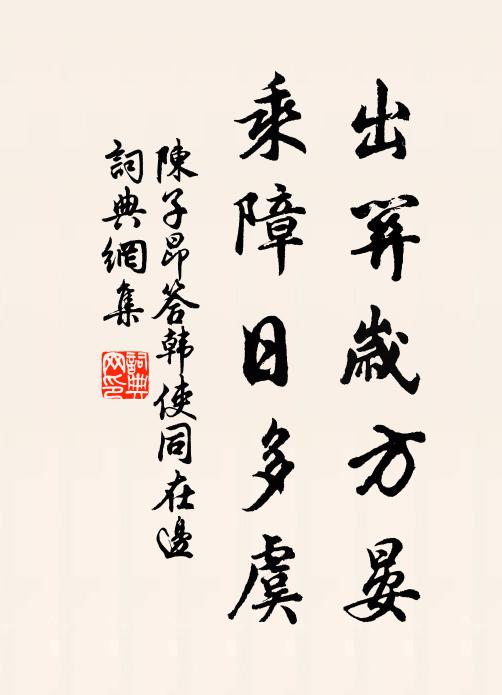 出關歲方晏
乘障日多虞
陳子昂答韩使同在邊
詞典網集
詞典
网印